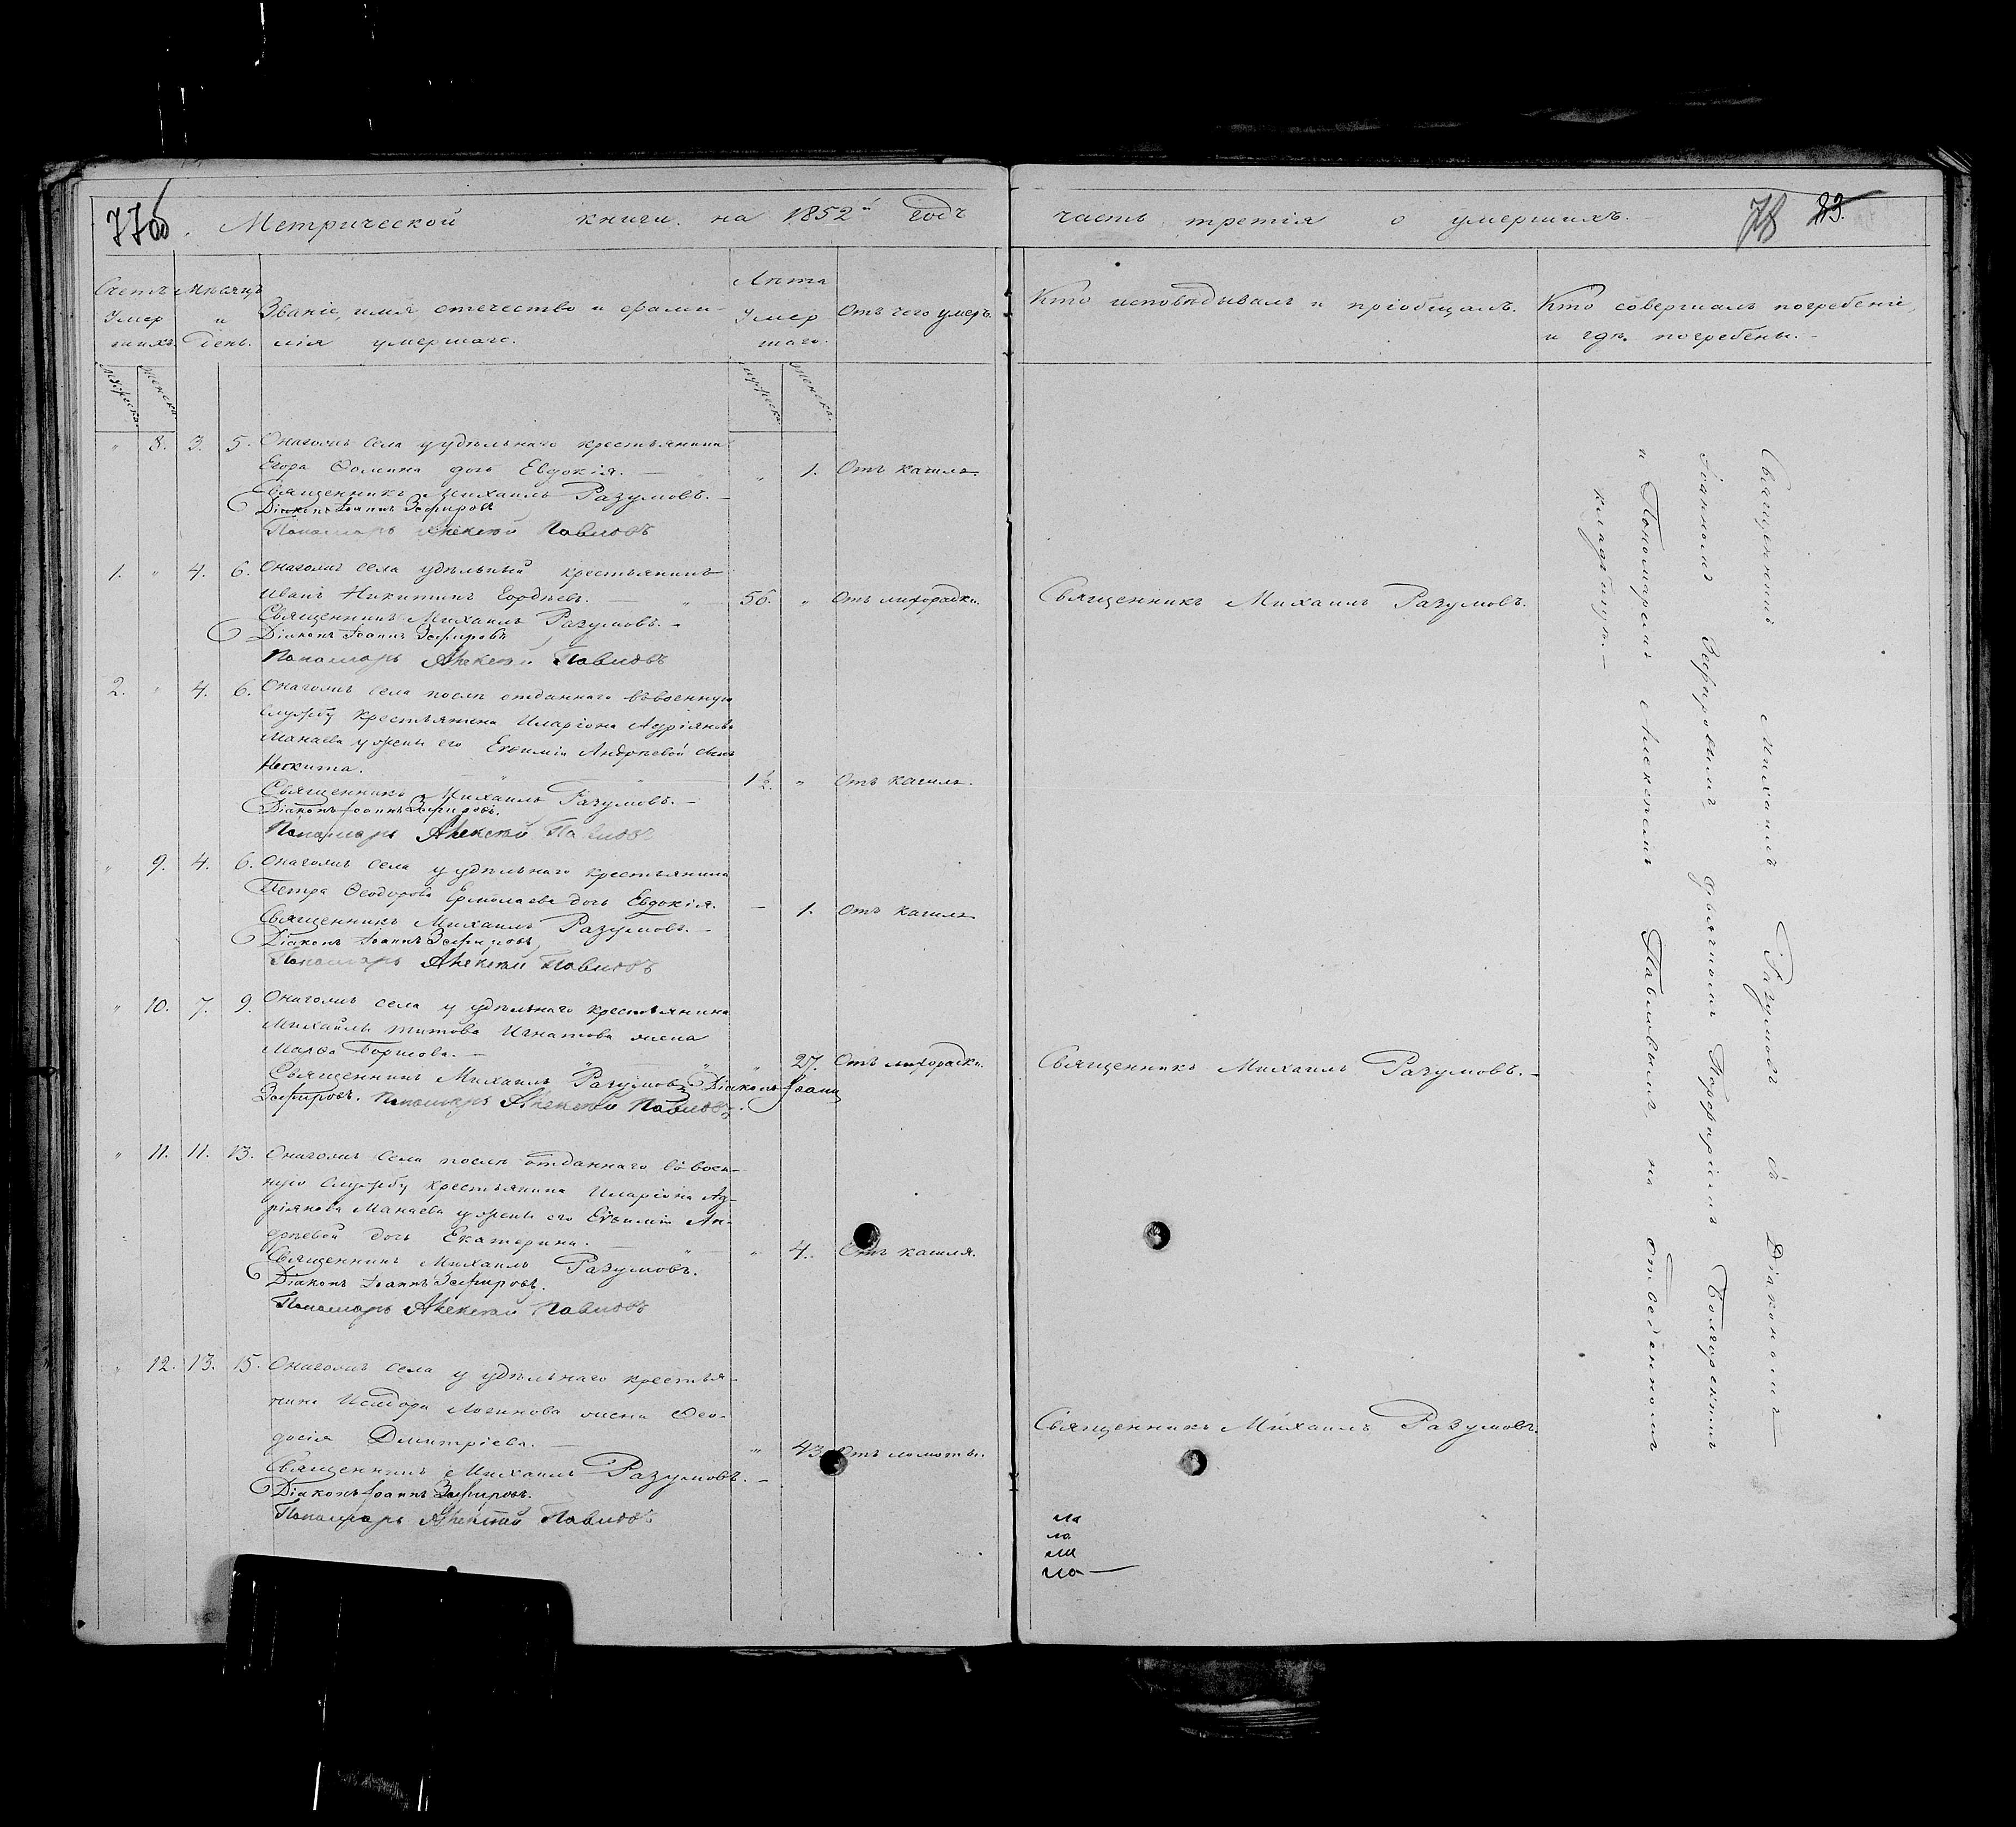 77об. Метрической книги на 1852й годъ
Счетъ умершихъ.
Мѣсяцъ и день.
Званіе, имя отечество и фами-
лія умершаго.
Лѣта умершаго.
Отъ чего умеръ.
мужеска женска
мужеска женска
" 8. 3. 5. Онагожъ села у удѣльнаго крестьянина
Егора Ѳомина дочь Евдокія. — " 1. Отъ кашля.
Священникъ Михаилъ Разумовъ. —
Діаконъ Іоаннъ Зефировъ
Пономарь Алексѣй Павловъ
1. " 4. 6. Онагожъ села удѣльный крестьянинъ
Иванъ Никитинъ Гордѣевъ. — 56. " Отъ лихорадки.
Священникъ Михаилъ Разумовъ. —
Діаконъ Іоаннъ Зефировъ
Пономарь Алексѣй Павловъ
2. " 4. 6. Онагожъ села послѣ отданнаго въ военную
службу крестьянина Иларіона Адріянова
Манаева у жены его Евѳиміи Андреевой сынъ
Никита. 1½. " Отъ кашля.
Священникъ Михаилъ Разумовъ. —
Діаконъ Іоаннъ Зефировъ.
Пономарь Алексѣй Павловъ
" 9. 4. 6. Онагожъ села у удѣльнаго крестьянина
Петра Ѳеодорова Ермолаева дочь Евдокія. — 1. Отъ кашля
Священникъ Михаилъ Разумовъ. —
Діаконъ Іоаннъ Зефировъ
Пономарь Алексѣй Павловъ
" 10. 7. 9. Онагожъ села у удѣльнаго крестьянина
Михаилъ Титова Игнатова жена
Марѳа Борисова. — " 27. Отъ лихорадки.
Священникъ Михаилъ Разумовъ Діаконъ Іоаннъ
Зефировъ. Пономарь Алексѣй Павловъ.
" 11. 11. 13. Онагожъ села послѣ отданнаго въ воен-
ную службу крестьянина Иларіона Ад-
ріянова Манаева у жены его Евѳиміи Ан-
дреевой дочь Екатерина. — " 4. Отъ кашля.
Священникъ Михаилъ Разумовъ.
Діаконъ Іоаннъ Зефировъ.
Пономарь Алексѣй Павловъ
" 12. 13. 15. Онагожъ села у удѣльнаго крестья-
нина Исидора Логинова жена Ѳео-
досія Дмитріева. — " 43. Отъ ломоты.
Священникъ Михаилъ Разумовъ. —
Діаконъ Іоаннъ Зефировъ.
Пономарь Алексѣй Павловъ
часть третія о умершихъ. 78 83.
Кто исповѣдывалъ и пріобщалъ.
Кто совершалъ погребеніе,
и гдѣ погребены. —
Священникъ Михаилъ Разумовъ.
Священникъ Михаилъ Разумовъ. —
Священникъ Михаилъ Разумовъ.
Священникъ Михаилъ Разумовъ съ Діакономъ
Іоанномъ Зефировымъ дьячкомъ Порфиріемъ Болгарскимъ
и Пономаремъ Алексѣемъ Павловымъ на отведенномъ
кладбищѣ. —